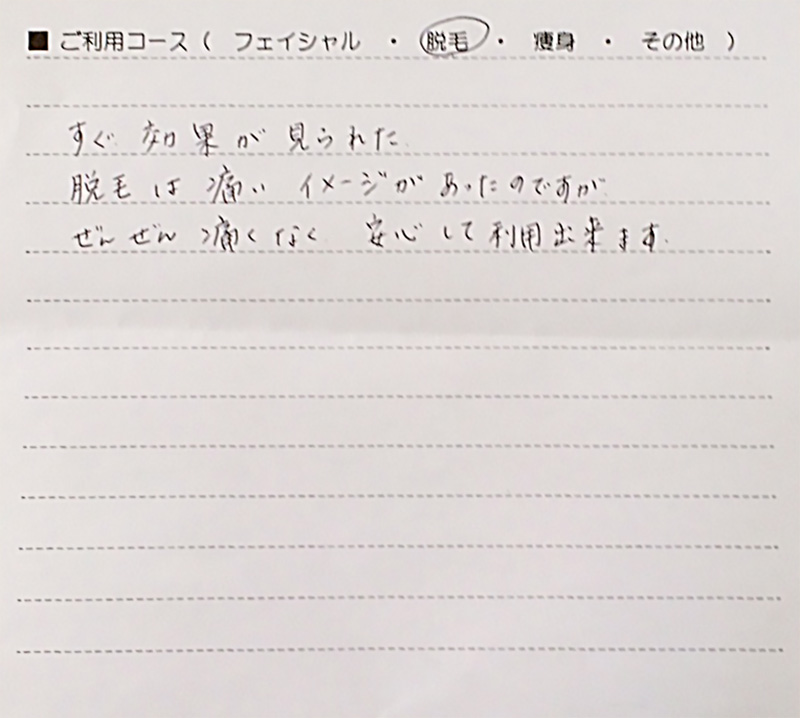 ■ ご利用コース（ フェイシャル ・ 脱毛 ・ 痩身 ・ その他 ）
すぐ 効果が 見られた
脱毛は 痛い イメージがあったのですが
ぜんぜん 痛くなく 安心して利用出来ます.